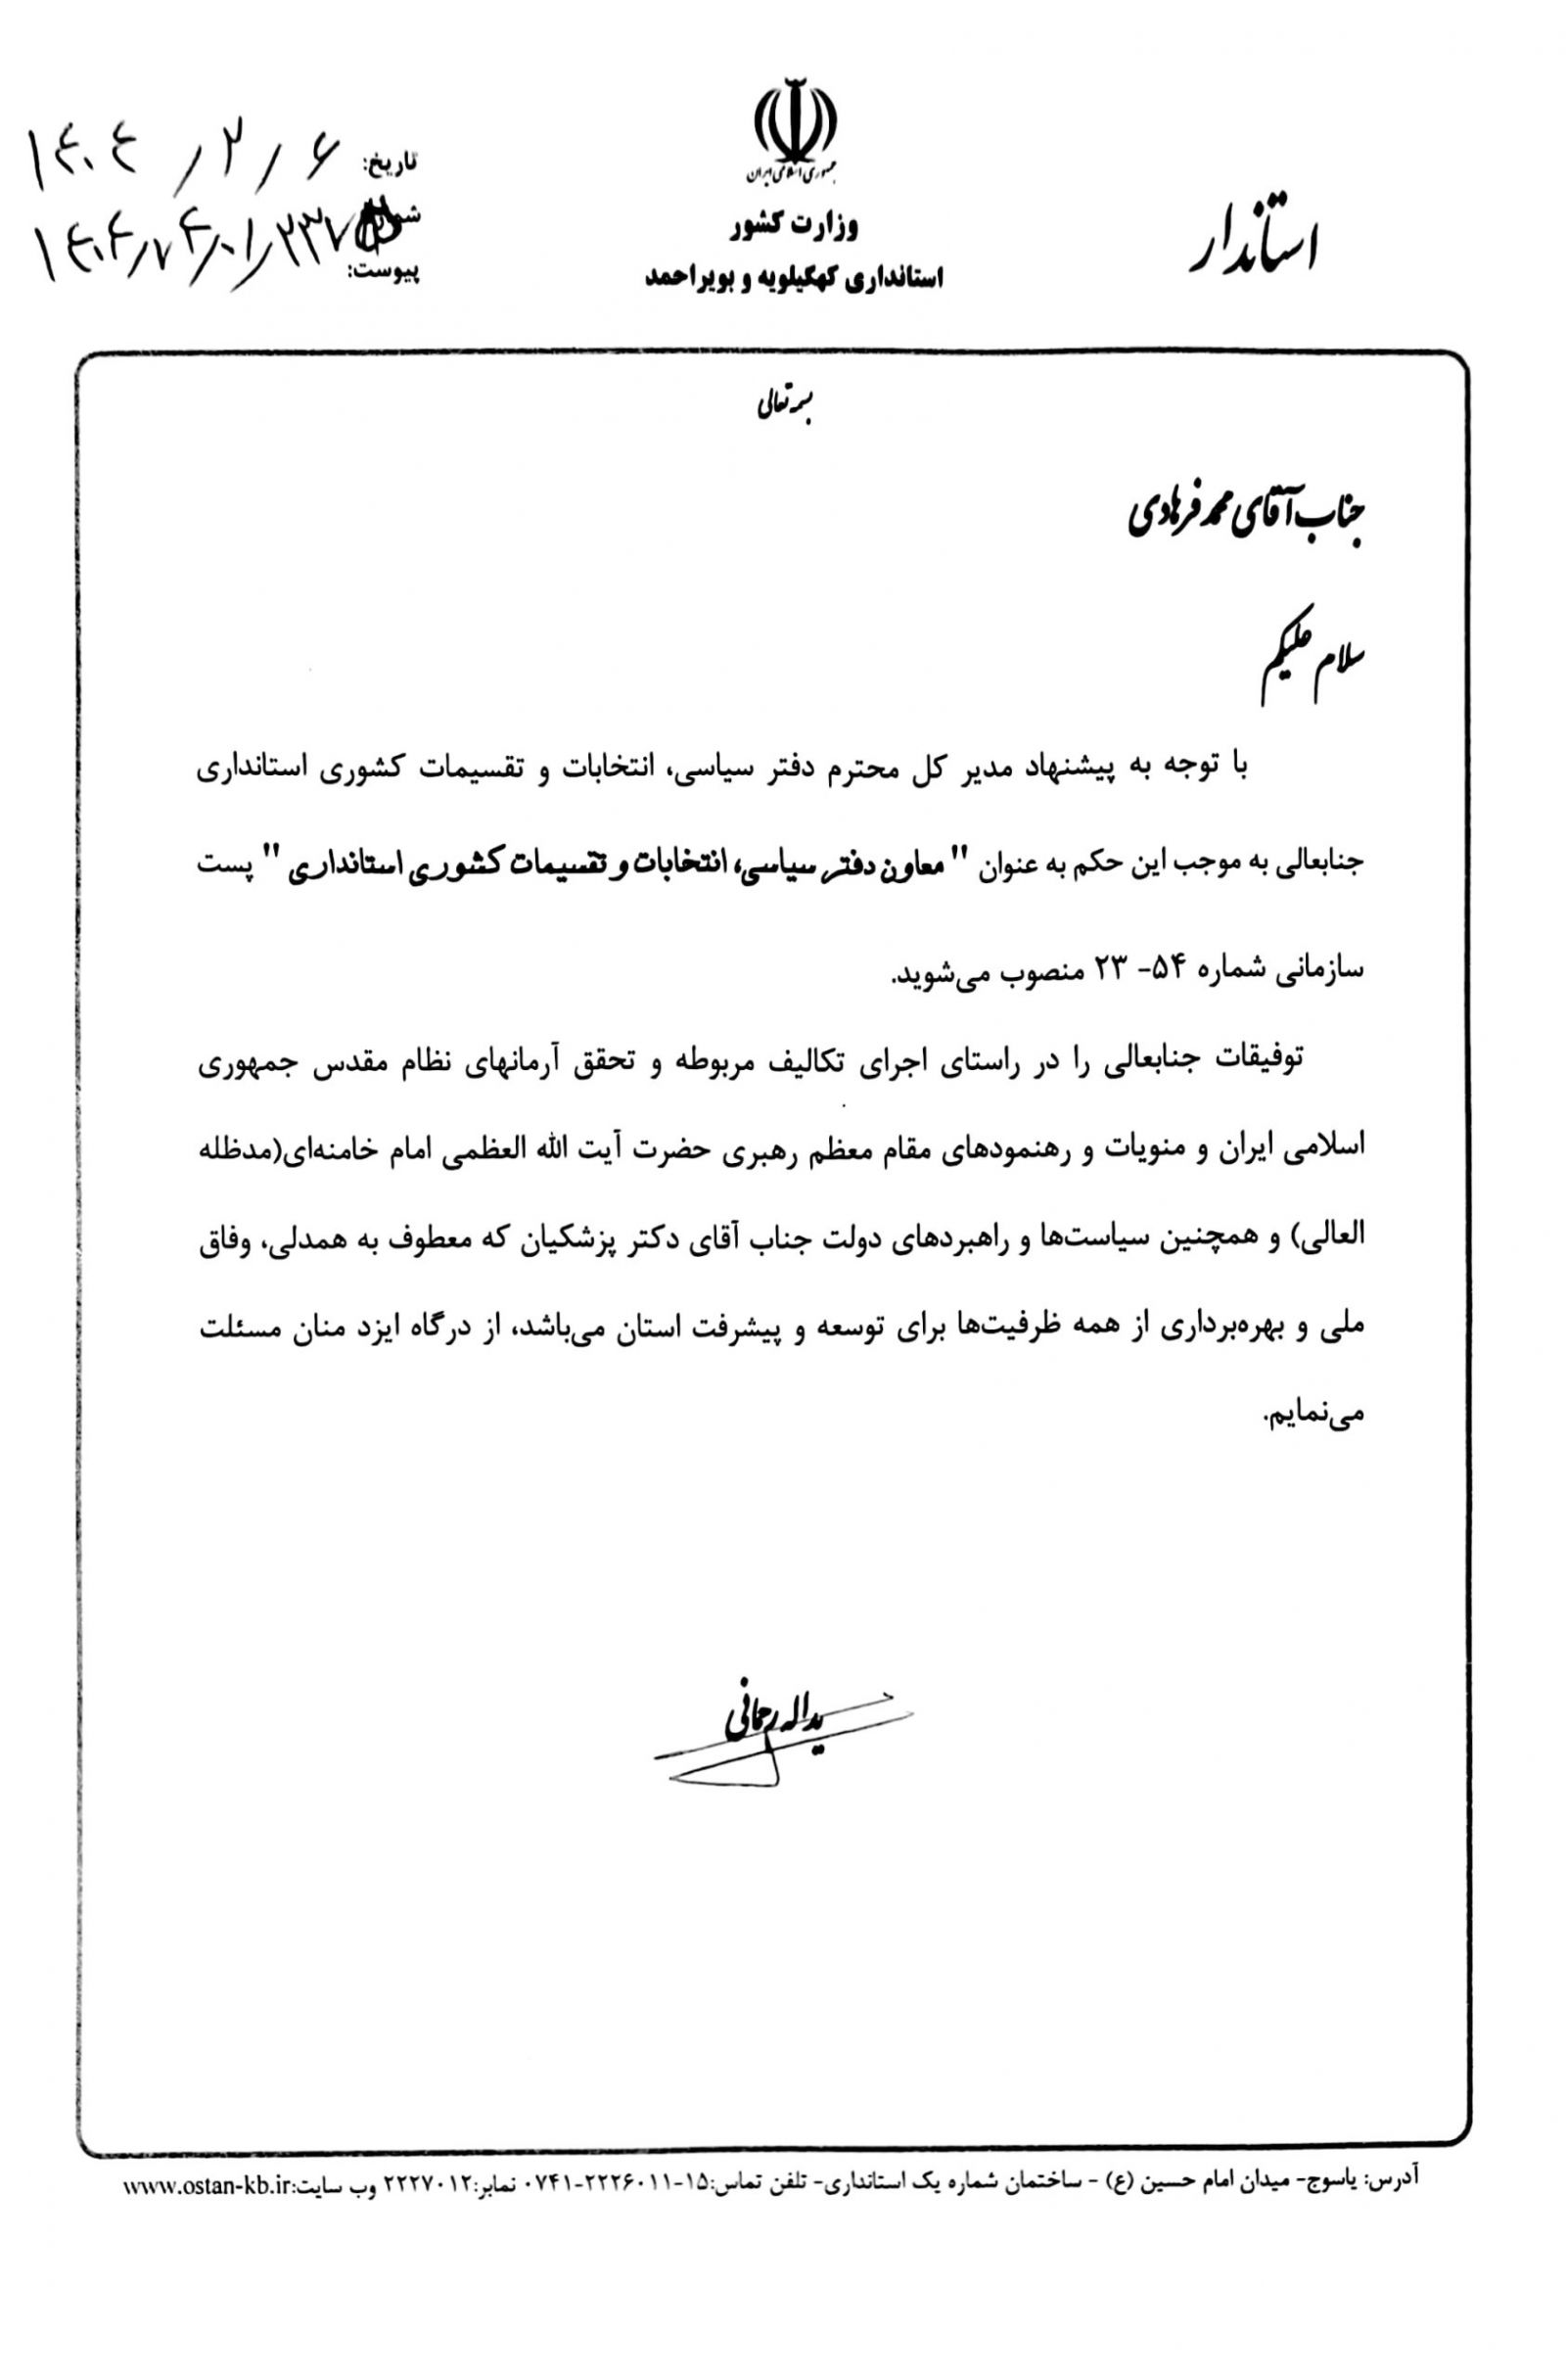 جمهوری اسلامی ایران
وزارت کشور
استانداری کهکیلویه و بویراحمد
استاندار
تاریخ: ۱۴۰۴/۲/۶
شماره:
پیوست:
بسمه تعالی
جناب آقای محمد فرهادی
سلام علیکم
با توجه به پیشنهاد مدیر کل محترم دفتر سیاسی، انتخابات و تقسیمات کشوری استانداری
جنابعالی به موجب این حکم به عنوان " معاون دفتر سیاسی، انتخابات و تقسیمات کشوری استانداری " پست
سازمانی شماره ۵۴- ۲۳ منصوب می‌شوید.
توفیقات جنابعالی را در راستای اجرای تکالیف مربوطه و تحقق آرمانهای نظام مقدس جمهوری
اسلامی ایران و منویات و رهنمودهای مقام معظم رهبری حضرت آیت الله العظمی امام خامنه‌ای(مدظله
العالی) و همچنین سیاست‌ها و راهبردهای دولت جناب آقای دکتر پزشکیان که معطوف به همدلی، وفاق
ملی و بهره‌برداری از همه ظرفیت‌ها برای توسعه و پیشرفت استان می‌باشد، از درگاه ایزد منان مسئلت
می‌نمایم.
یداله رحمانی
آدرس: یاسوج- میدان امام حسین (ع) - ساختمان شماره یک استانداری- تلفن تماس:۱۵-۲۲۲۶۰۱۱-۰۷۴۱ نمابر:۲۲۲۷۰۱۲ وب سایت:www.ostan-kb.ir